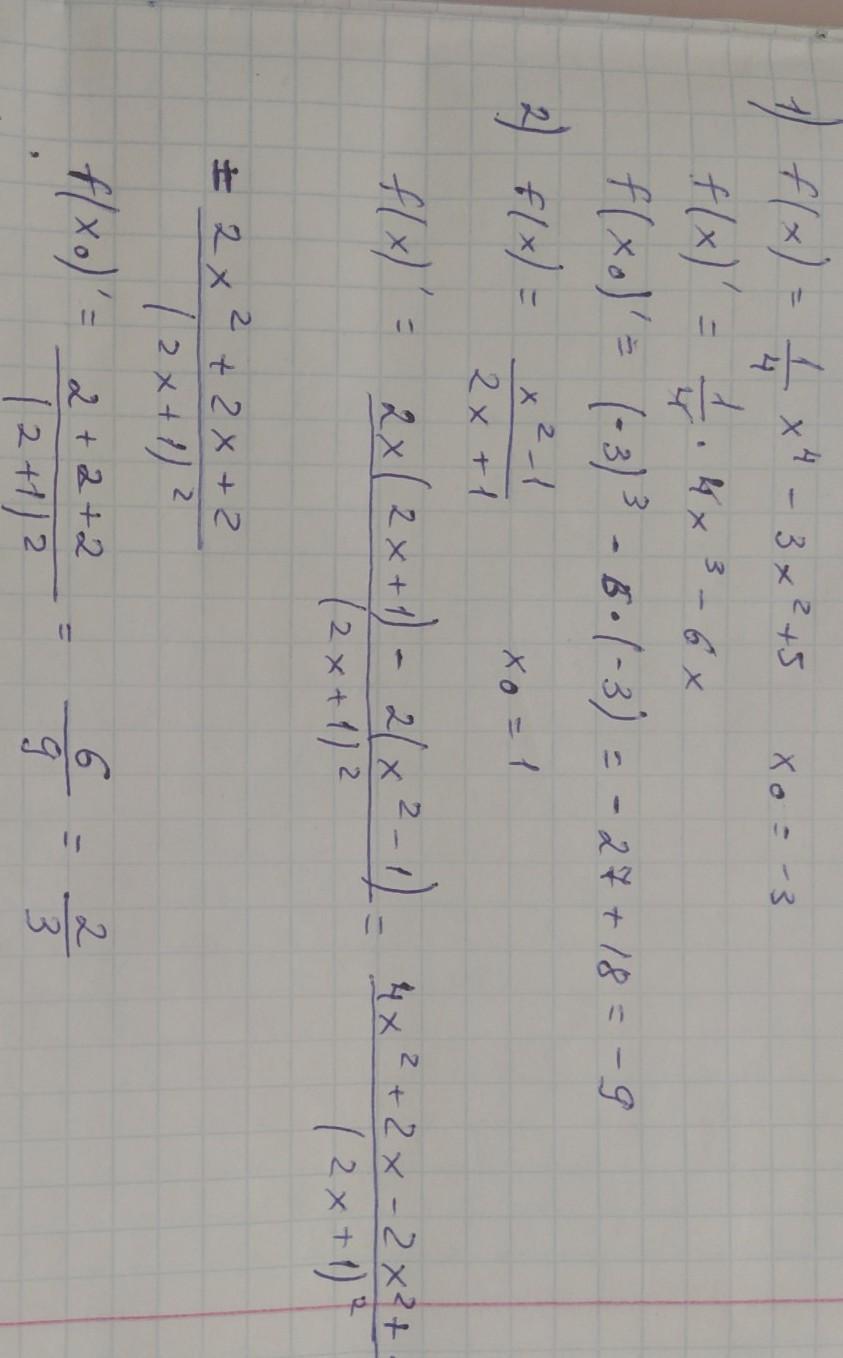 1) f(x) = 1/4 x⁴ - 3x² + 5 x₀ = -3
f(x)' = 1/4 · 4x³ - 6x
f(x₀)' = (-3)³ - 6·(-3) = -27 + 18 = -9
2) f(x) = (x² - 1)/(2x + 1) x₀ = 1
f(x)' = (2x(2x+1) - 2(x² - 1))/(2x+1)² = (4x² + 2x - 2x² +)/(2x+1)²
= (2x² + 2x + 2)/(2x+1)²
f(x₀)' = (2 + 2 + 2)/(2+1)² = 6/9 = 2/3